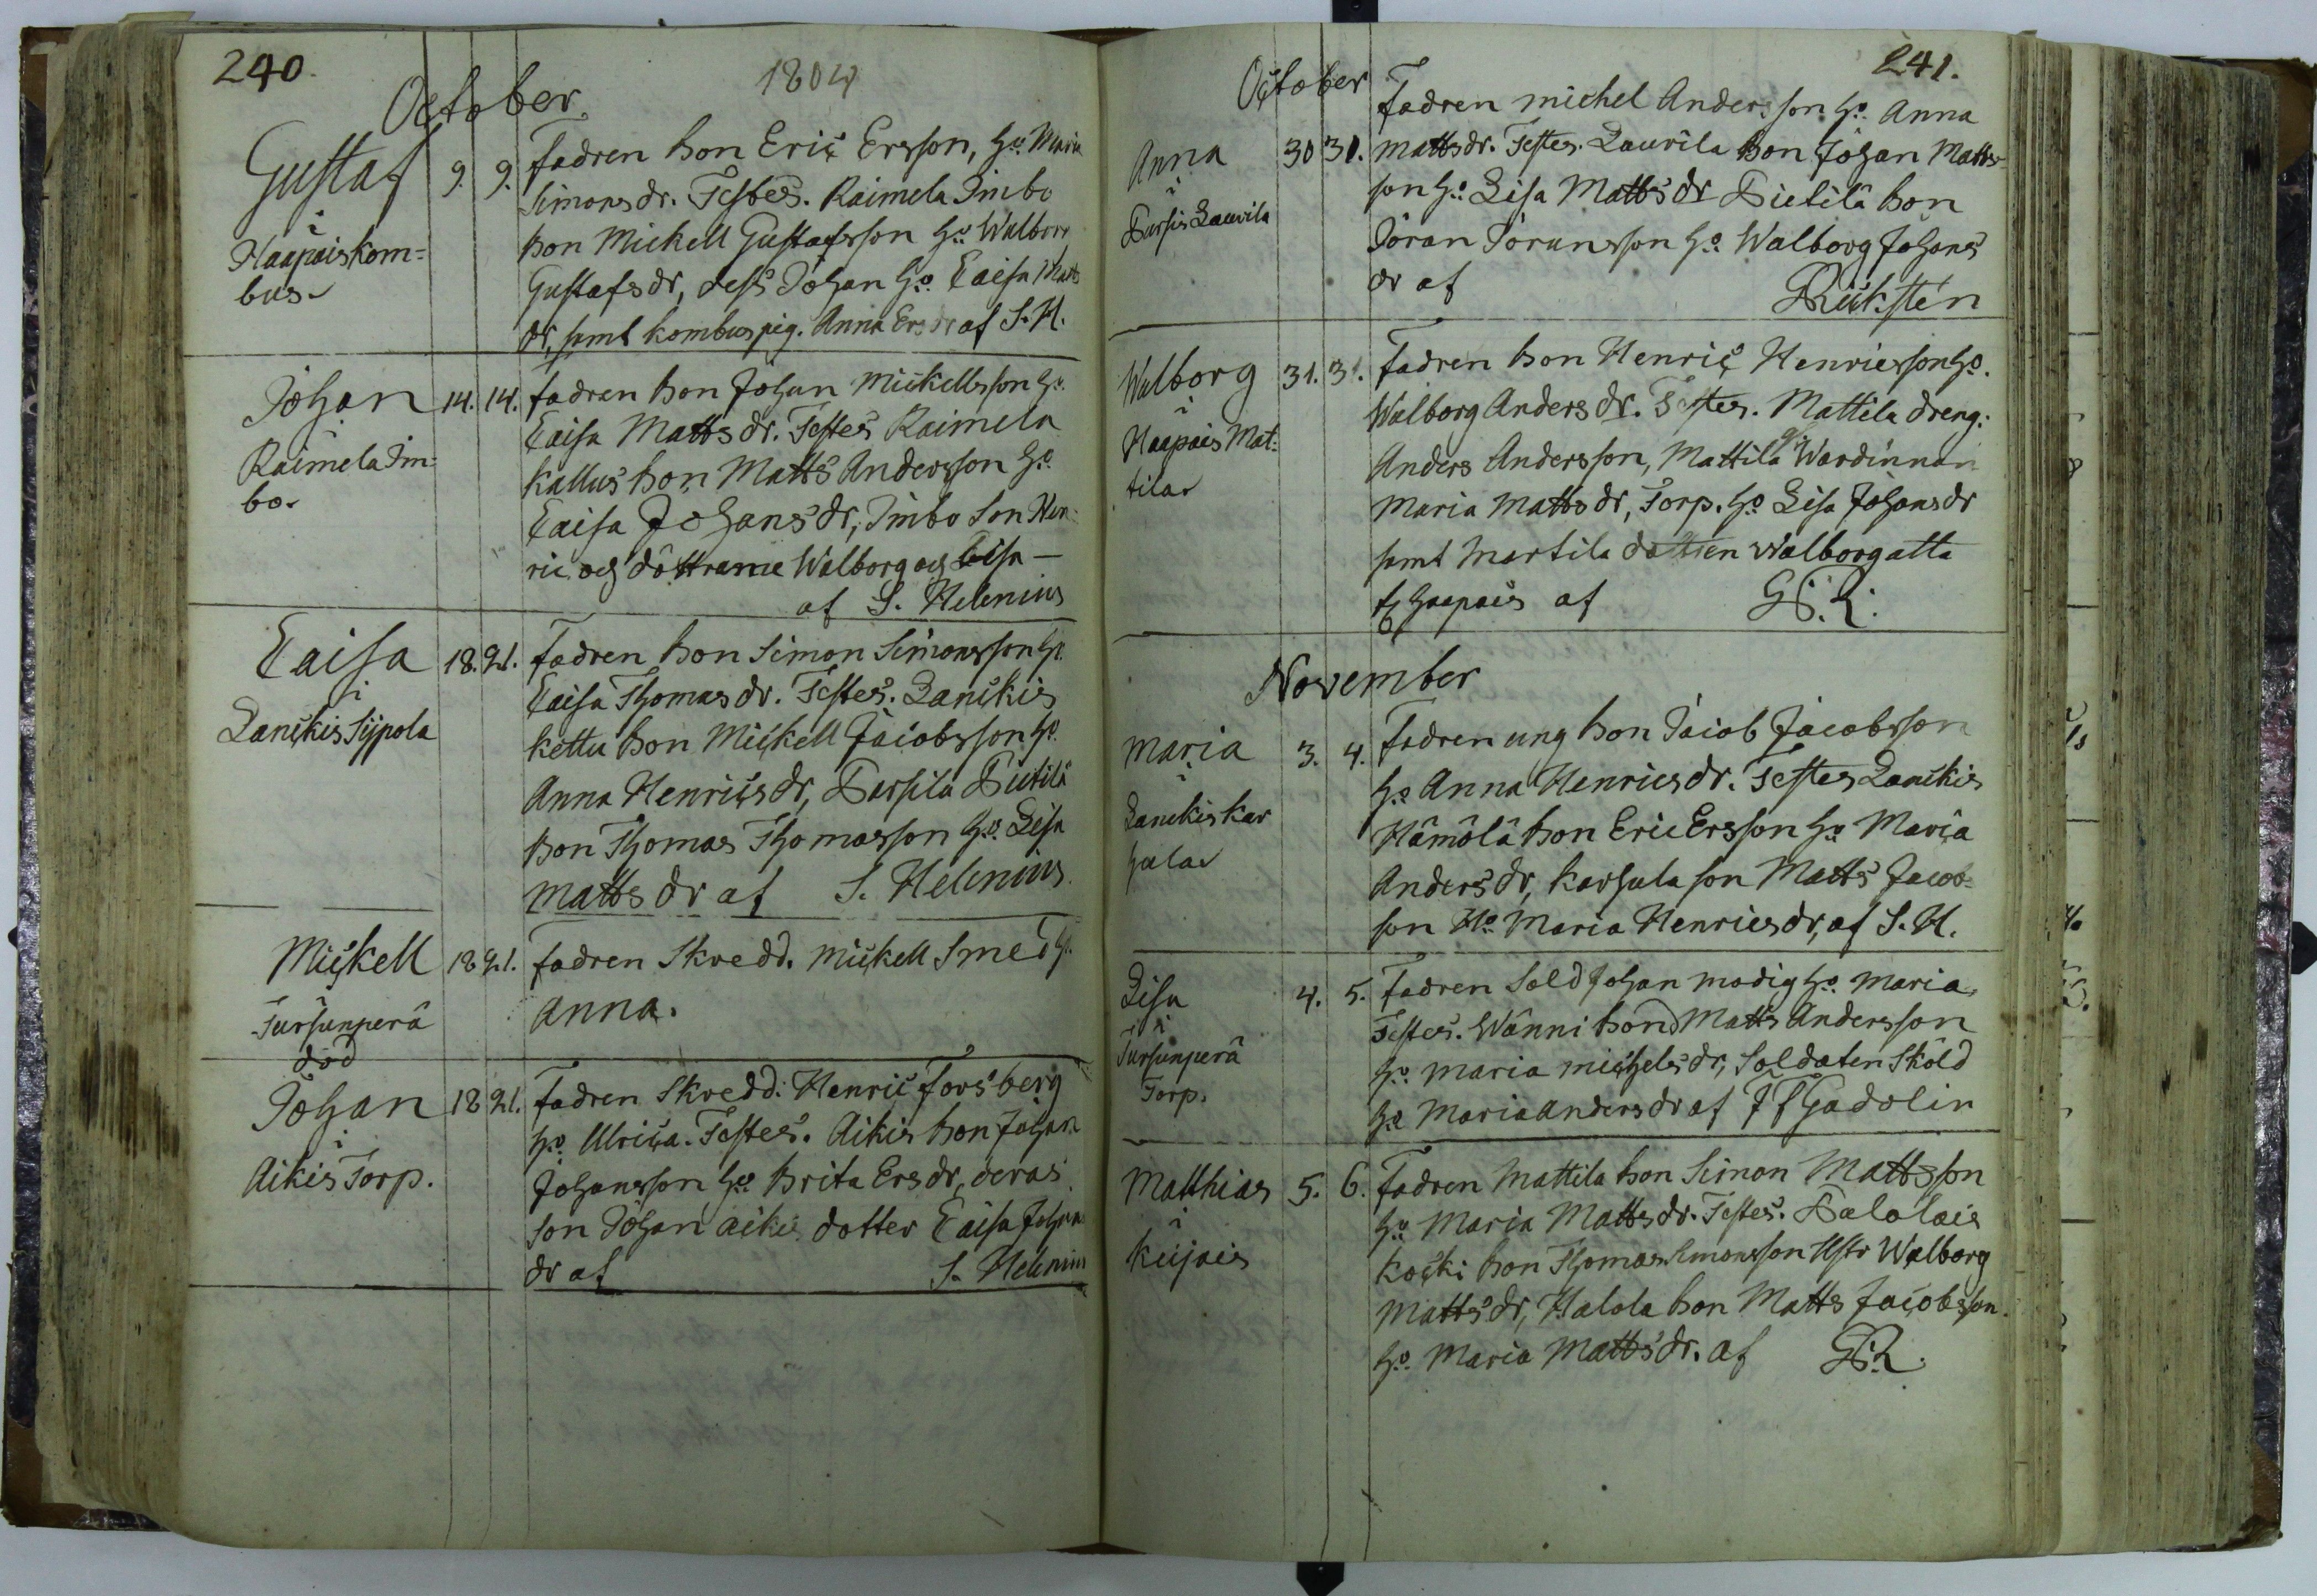 240.
1804
October.
Gustaf
i
Haapaiskom=
bus.
9. 9.
fadren bon Eric Ersson, h:o Maria
Simonsdr. Testes. Raimela Simbo
bon Mickell Gustafsson h:o Walborg
Gustafsdr, dess Johan h:o Caisa Matts
dr, samt kombus pig. Anna Ersdr af S. H.
Johan
Raimela Sim=
bo.
14. 14.
fadren bon Johan Mickellsson h:o
Caisa Mattsdr. Testes Raimela
Kallus bon Matts Andersson h:o
Caisa Johansdr, Simbo Son Hen=
ric och döttrarne Walborg och Lisa —
af S. Helenius
Caisa
i
Lanckis Sijpola
18. 21.
fadren bon Simon Simonsson h:o
Caisa Thomasdr. Testes. Lanckis
kettu bon Mickell Jacobsson h:o
Anna Henricsdr, Parsila Pietilä
bon Thomas Thomasson h:o Lisa
Mattsdr af S. Helenius
Mickell
Tursunperä
död
18 21.
fadren Skredd. Mickell Smed h:o
Anna.
Johan
i
Aikis Torp.
18 21.
fadren Skredd. Henric Forsberg
h:o Ulrica. Testes. Aikis bon Johan
Johansson h:o Brita Ersdr, deras
son Johan aikis dotter Caisa Johans
dr af S. Helenius
241.
October
Anna
i
Pursis Laurila
30 31.
Fadren Michel Andersson h:o Anna
Mattsdr. Testes. Laurila bon Johan Matts=
son h:o Lisa Mattsdr Pietilä bon
Jöran Jöransson h:o Walborg Johans
dr af
Walborg
i
Haapais Mat=
tila
31. 31.
fadren bon Henric Henricsson h:o
Walborg Andersdr. Testes. Mattila dreng.
Anders Andersson, Mattila Wärdinnan
Maria Mattsdr, Torp. h:o Lisa Johansdr
samt Martila dottren Walborg alla
haapais af
November
Maria
i
Lanckis Kar
hula
3. 4.
Fadren ung bon Jacob Jacobsson
h:o Anna Henricsdr. Testes Lanckis
Hämölä bon Eric Ersson h:o Maria
Andersdr, Karhula son Matts Jacob=
son H:o Maria Henricsdr, af S. H.
Lisa
i
Tursunperä
Torp.
4. 5.
Fadren Sold Johan Modig h:o Maria
Testes. Wänni bond Matts Andersson
h:o Maria Michelsdr, Soldaten Sköld
h:o Maria Andersdr af J F Gadolin
Matthias
i
Keijais
5. 6.
Fadren Mattila bon Simon Mattsson
h:o Maria Mattsdr. Testes. Halolais
Kocki bon Thomas Simonsson Hstr Walborg
Mattsdr, Halola bon Matts Jacobsson
h:o Maria Mattsdr. af